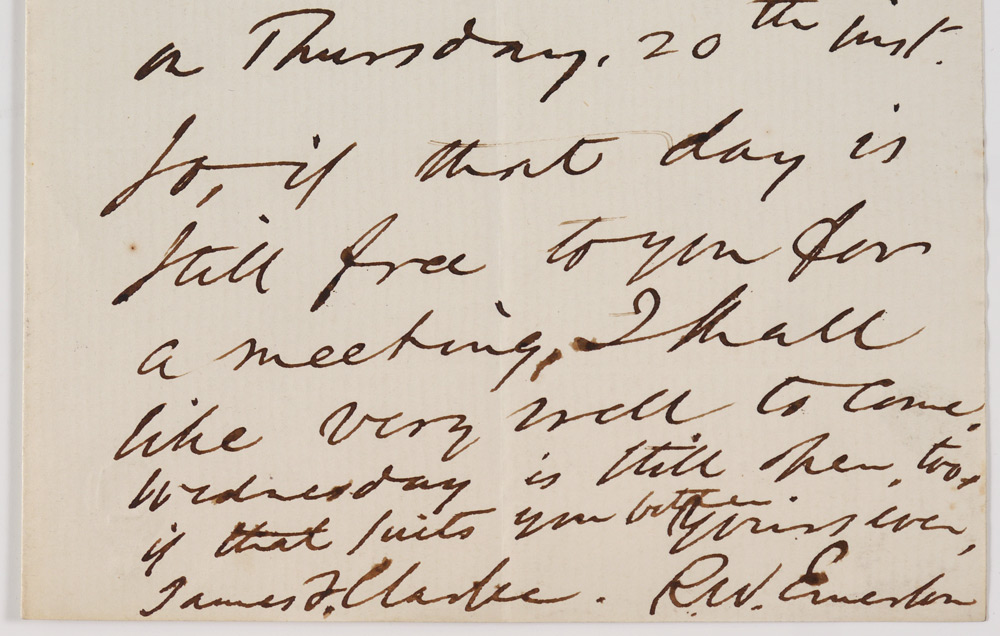 on Thursday, 20th inst.
So, if that day is
still free to you for
a meeting, I shall
like very well to come.
Wednesday is still open, too,
if that suits you better. Yours ever,
James F. Clarke. R. W. Emerson